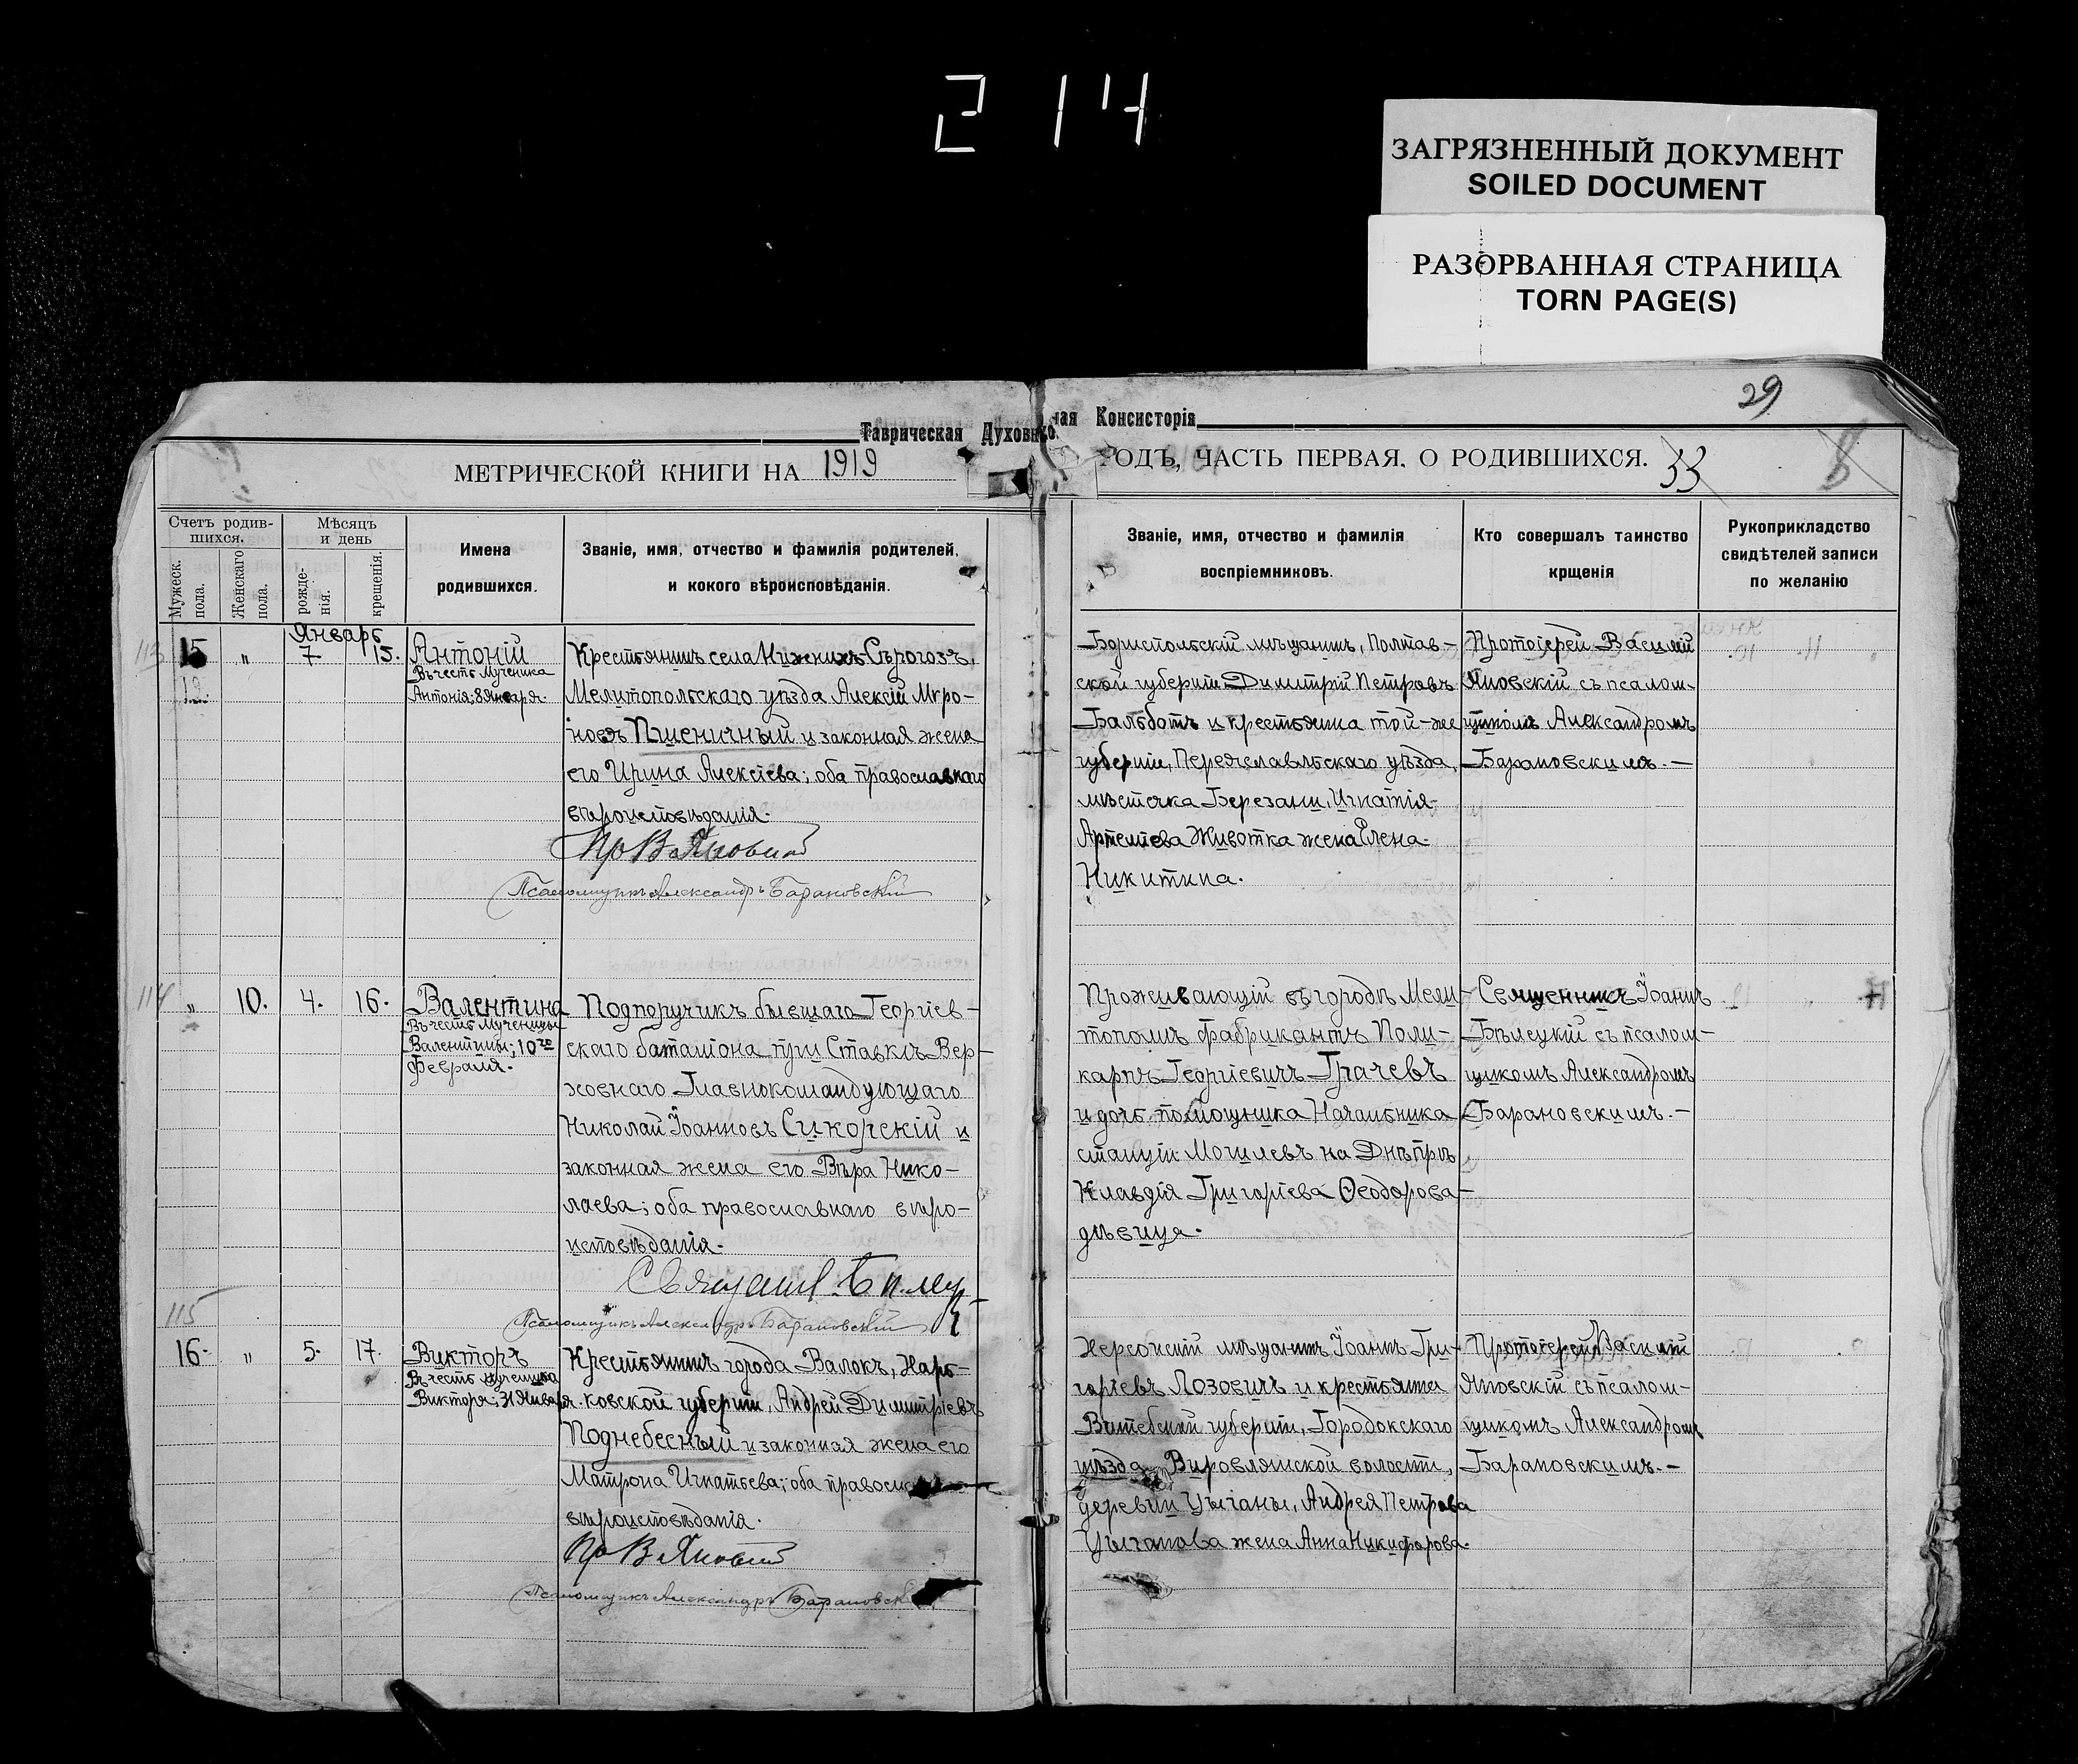 214
ЗАГРЯЗНЕННЫЙ ДОКУМЕНТ
SOILED DOCUMENT
РАЗОРВАННАЯ СТРАНИЦА
TORN PAGE(S)
29
Таврическая Духовная Консисторія
МЕТРИЧЕСКОЙ КНИГИ НА 1919
ОДЪ, ЧАСТЬ ПЕРВАЯ. О РОДИВШИХСЯ. 33
Счетъ родив-
шихся.
Мужеск. пола.
Женскаго пола.
Мѣсяцъ
и день
рожде-
нія.
крещенія.
Имена
родившихся.
Званіе, имя, отчество и фамилія родителей,
и кокого вѣроисповѣданія.
Званіе, имя, отчество и фамилія
воспріемниковъ.
Кто совершалъ таинство
крщенія
Рукоприкладство
свидѣтелей записи
по желанію
Январь
113
15 „ 7 15.
Антоній
Въ честь Мученика
Антонія; 8 января.
Крестьянинъ села Нижнихъ-Сѣрогозъ,
Мелитопольскаго уѣзда Алексій Миро-
новъ Пшеничный и законная жена
его Ирина Алексіева; оба православнаго
вѣроисповѣданія.
Пр В Яновский
Псаломщикъ Александръ Барановскій
Бориспольскій мѣщанинъ, Полтав-
ской губерніи Димитрій Петровъ
Бальботъ и крестьянка той-же
губерніи, Переяславльскаго уѣзда,
мѣстечка Березани, Игнатія
Артеміева Животка жена Елена
Никитина.
Протоіерей Василій
Яновскій съ псалом-
щикомъ Александромъ
Барановскимъ.-
114
„ 10. 4. 16.
Валентина
Въ честь Мученицы
Валентины; 10го
февраля.
Подпоручикъ бывшаго Георгіев-
скаго баталіона при Ставкѣ Вер-
ховнаго Главнокомандующаго
Николай Іоанновъ Сикорскій и
законная жена его Вѣра Нико-
лаева; оба православнаго вѣро-
исповѣданія.
Псаломщикъ Александръ Барановскій
Проживающій въ городѣ Мели-
тополѣ фабрикантъ Поли-
карпъ Георгіевичъ Грачевъ
и дочь помощника Начальника
станціи Могилевъ на Днѣпрѣ
Клавдія Григоріева Ѳеодорова-
дѣвица.
Священникъ Іоаннъ
Бѣлецкій съ псалом-
щикомъ Александромъ
Барановскимъ.-
115
16. „ 5. 17.
Викторъ
Въ честь мученика
Виктора; 31 Января.
Крестьянинъ города Валокъ, Харь-
ковской губерніи, Андрей Димитріевъ
Поднебесный и законная жена его
Матрона Игнатьева; оба правосл
вѣроисповѣданія.
Пр В Яновский
Псаломщикъ Александръ Барановск
Херсонскій мѣщанинъ Іоаннъ Гри-
горіевъ Лозовичъ и крестьянка
Витебской губерніи, Городокскаго
уѣзда, Вировлянской волости,
деревни Цыганы, Андрея Петрова
Цыганова жена Анна Никифорова.
Протоіерей Василій
Яновскій съ псалом-
щикомъ Александромъ
Барановскимъ.-